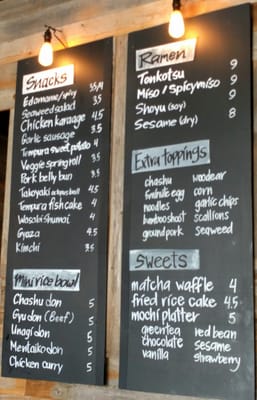 Snacks
Edamame/spicy 3.5/4
Seaweed salad 3.5
Chicken karaage 4.5
Garlic sausage 3.5
Tempura sweet potato 4
Veggie spring roll 3.5
Pork belly bun 3.5
Takoyaki octopus ball 4.5
Tempura fish cake 4
Wasabi Shumai 4
Gyoza 4.5
Kimchi 3.5
Mini rice bowl
Chashu don 5
Gyu don (Beef) 5
Unagi don 5
Mentaiko don 5
Chicken curry 5
Ramen
Tonkotsu 9
Miso / Spicy miso 9
Shoyu (soy) 9
Sesame (dry) 8
Extra toppings
chashu woodear
fmhile egg corn
noodles garlic chips
bamboo shoot scallions
ground pork seaweed
Sweets
matcha waffle 4
fried rice cake 4.5
mochi platter 5
green tea red bean
chocolate sesame
vanilla strawberry